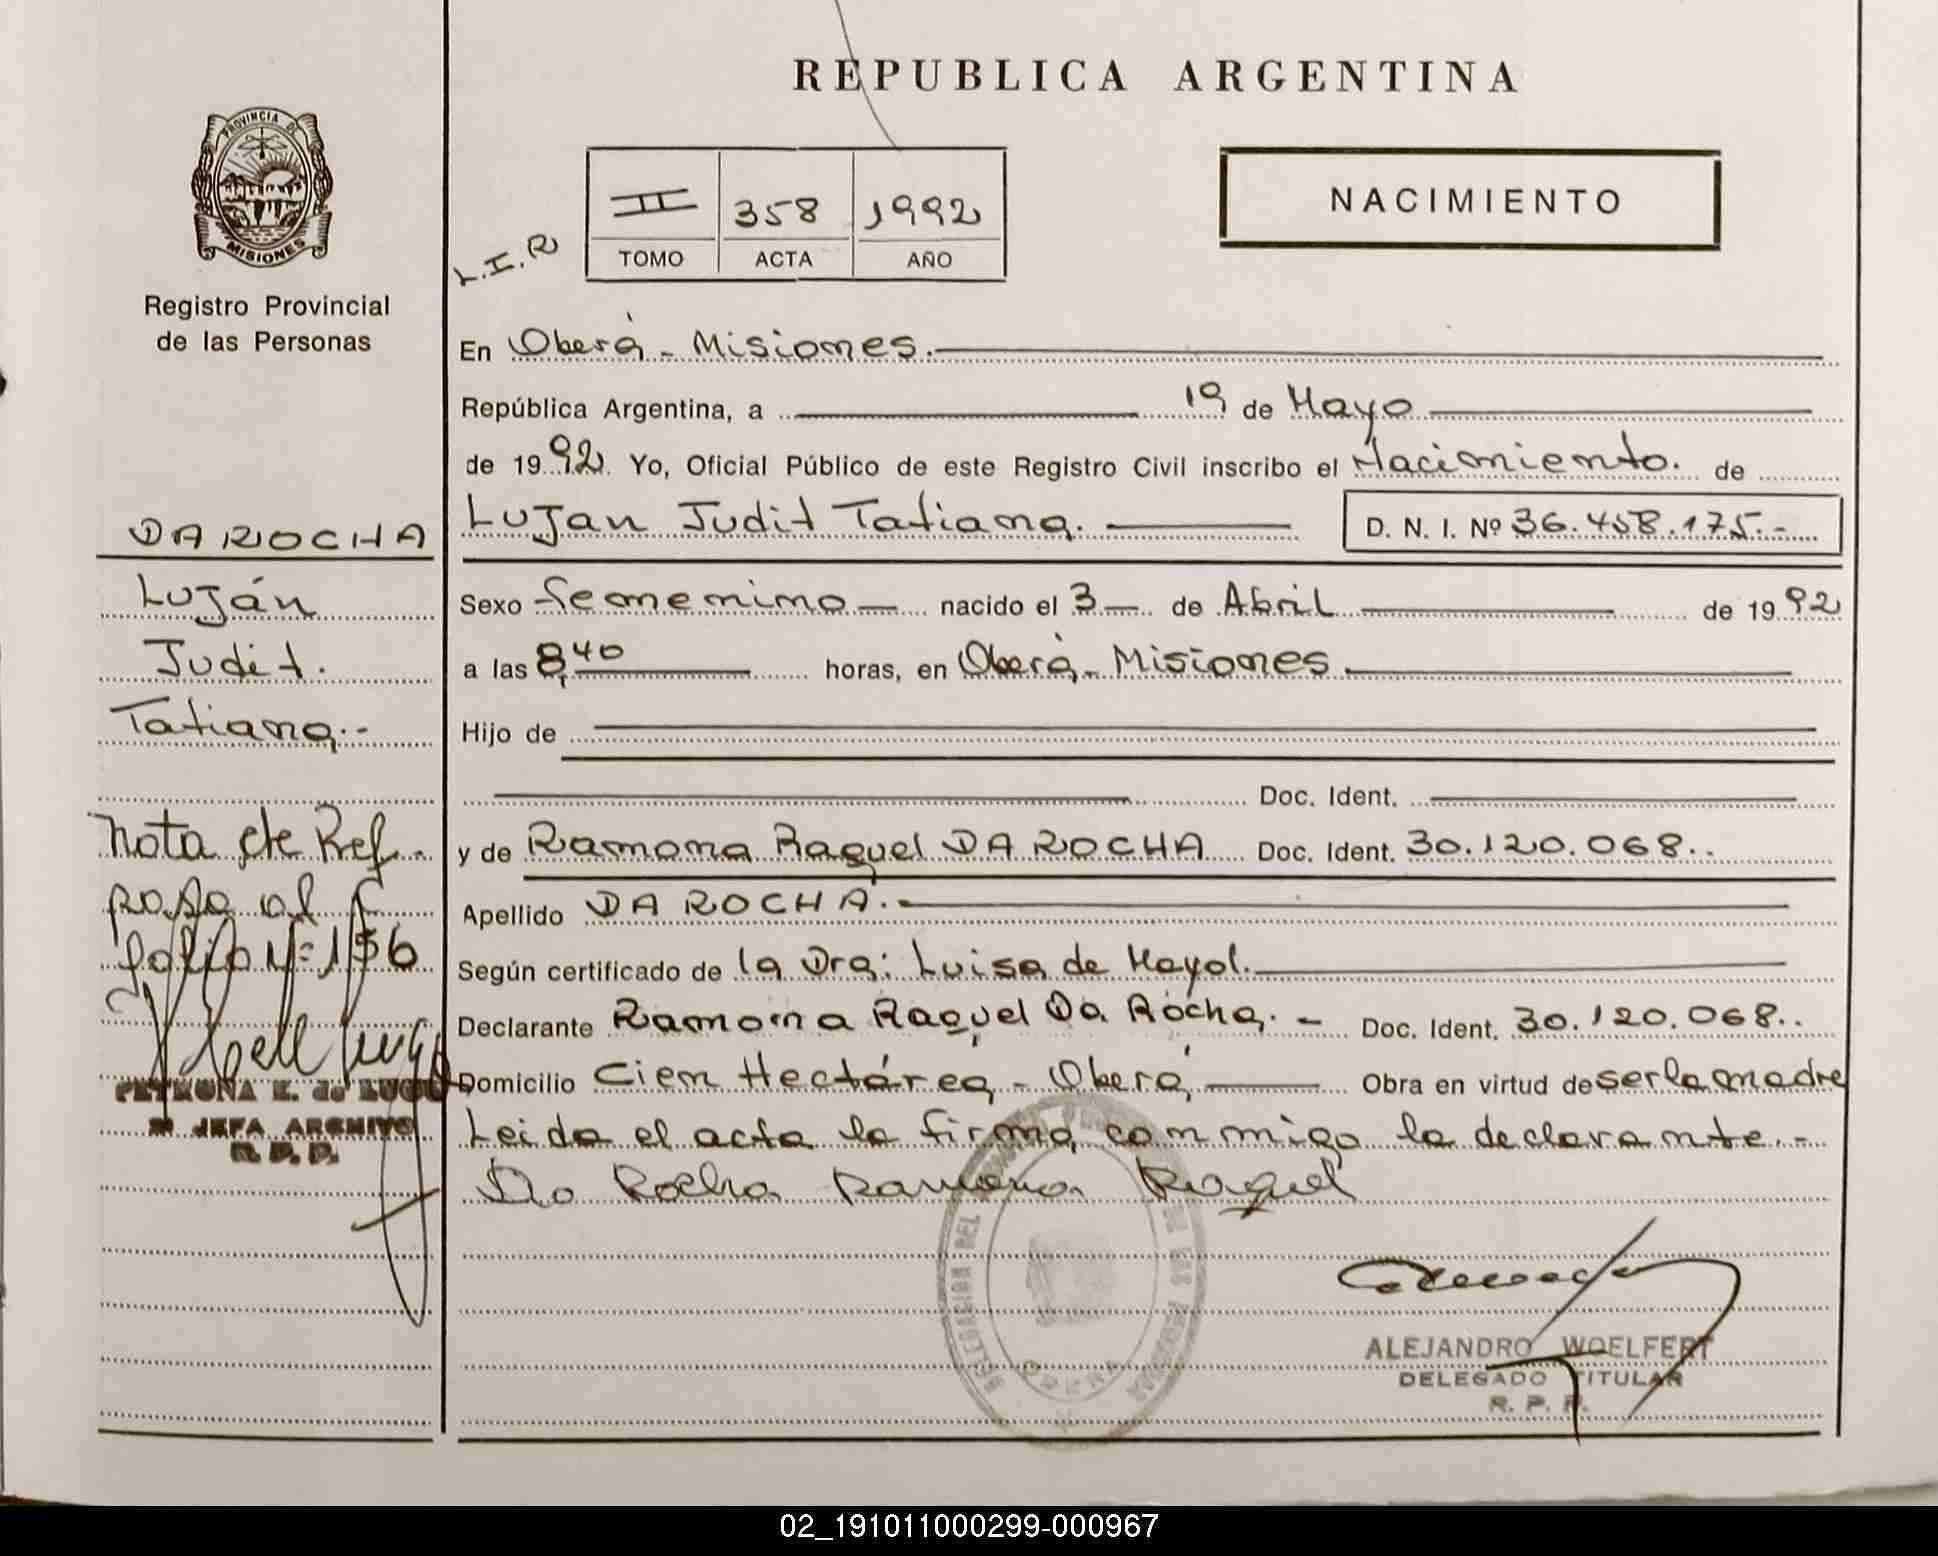 REPUBLICA ARGENTINA
PROVINCIA DE
MISIONES
Registro Provincial
de las Personas
L.I.R
II 358 1992
TOMO ACTA AÑO
NACIMIENTO
En Oberá - Misiones.
República Argentina, a 19 de Mayo
de 1992. Yo, Oficial Público de este Registro Civil inscribo el Nacimiento. de
Lujan Judit Tatiana.
D. N. I. Nº 36.458.175.-
Sexo femenino nacido el 3 de Abril de 1992
a las 8,40 horas, en Oberá - Misiones.
Hijo de
Doc. Ident.
y de Ramona Raquel DA ROCHA Doc. Ident. 30.120.068..
Apellido DA ROCHA.-
Según certificado de la Dra: Luisa de Mayol.
Declarante Ramona Raquel Da Rocha. - Doc. Ident. 30.120.068..
Domicilio Cien Hectárea - Oberá Obra en virtud de ser la madre
Leida el acta la firma conmigo la declarante.-
Da Rocha Ramona Raquel
DA ROCHA
Luján
Judit.
Tatiana.-
Nota de Ref.
pasa al
folio Nº 156
PETRONA E. de LUGO
JEFA ARCHIVO
R. P. P.
DELEGACION DEL REGISTRO DE LAS PERSONAS
OBERA
ALEJANDRO WOELFERT
DELEGADO TITULAR
R. P. P.
02_191011000299-000967